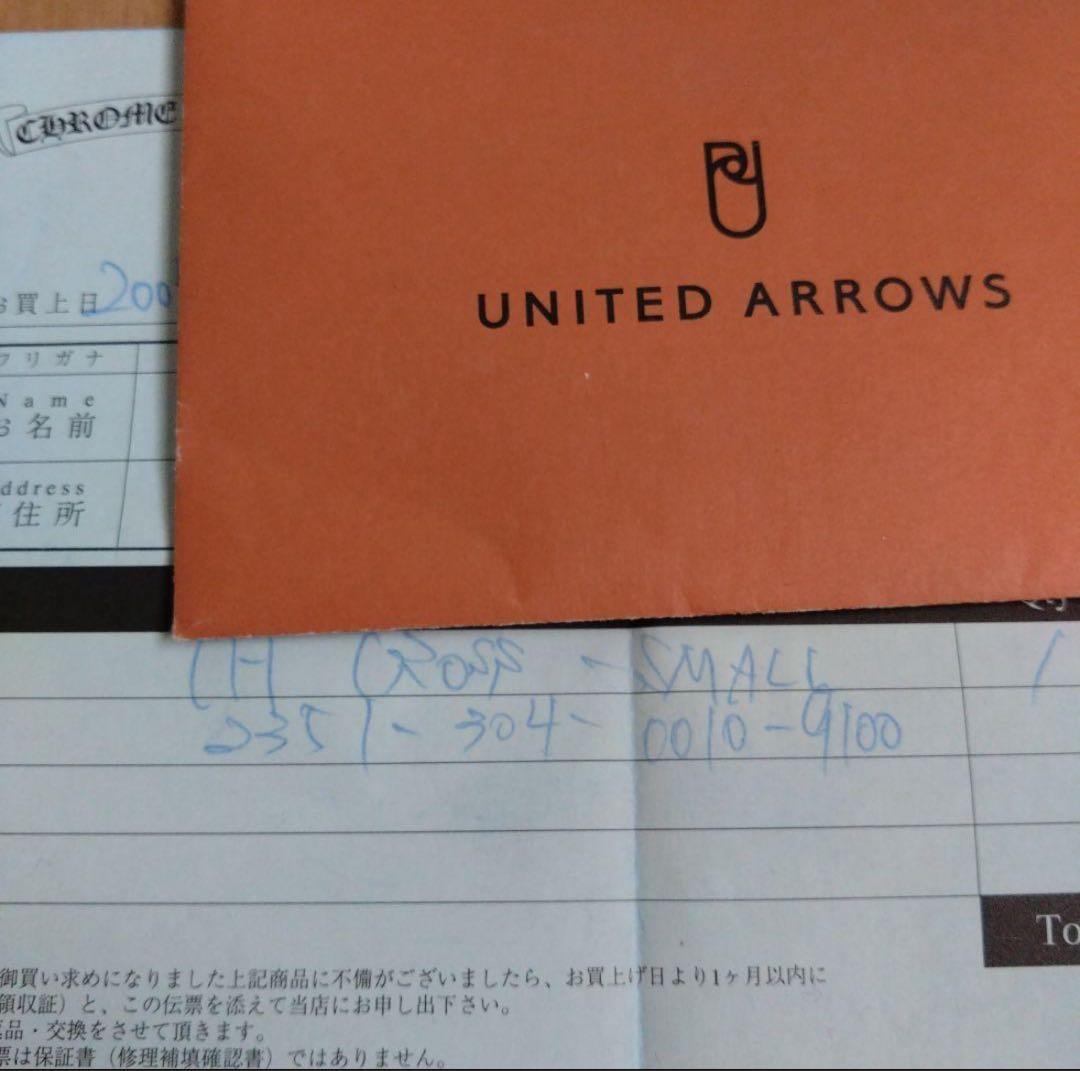 CHROME
お買上日 200
フリガナ
Name
お名前
ddress
住所
UNITED ARROWS
CH CROSS - SMALL 1
2351-304-0010-9100
To
御買い求めになりました上記商品に不備がございましたら、お買上げ日より1ヶ月以内に
領収証）と、この伝票を添えて当店にお申し出下さい。
返品・交換をさせて頂きます。
票は保証書（修理補填確認書）ではありません。